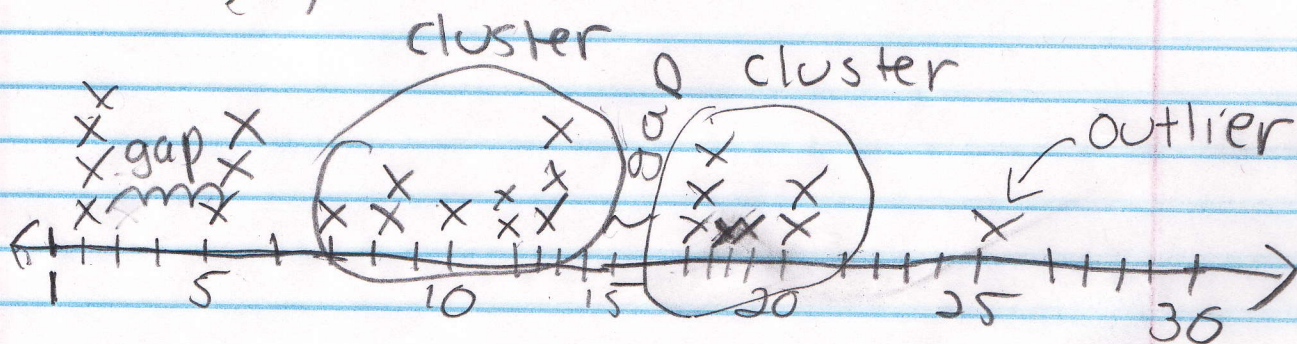 cluster
gap cluster
gap
outlier
1 5 10 15 20 25 30